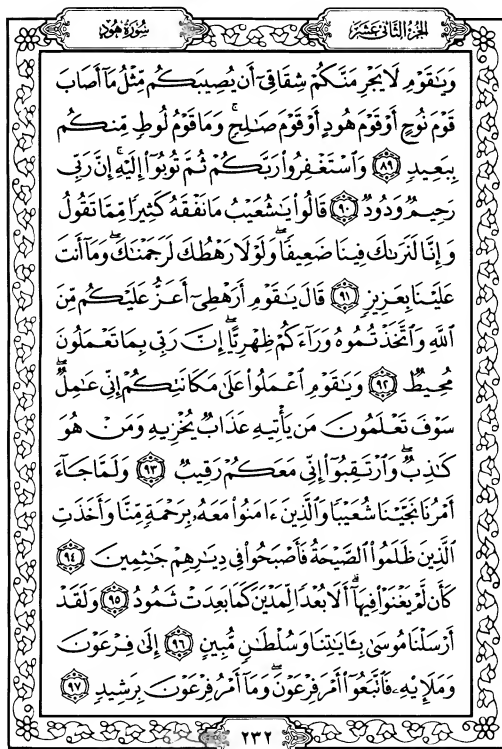 الجزء الثاني عشر
سورة هود
وَيَٰقَوْمِ لَا يَجْرِمَنَّكُمْ شِقَاقِيٓ أَن يُصِيبَكُم مِّثْلُ مَآ أَصَابَ
قَوْمَ نُوحٍ أَوْ قَوْمَ هُودٍ أَوْ قَوْمَ صَٰلِحٍۚ وَمَا قَوْمُ لُوطٍ مِّنكُم
بِبَعِيدٍ ٨٩ وَٱسْتَغْفِرُوا۟ رَبَّكُمْ ثُمَّ تُوبُوٓا۟ إِلَيْهِۚ إِنَّ رَبِّي
رَحِيمٌ وَدُودٌ ٩٠ قَالُوا۟ يَٰشُعَيْبُ مَا نَفْقَهُ كَثِيرًا مِّمَّا تَقُولُ
وَإِنَّا لَنَرَىٰكَ فِينَا ضَعِيفًاۖ وَلَوْلَا رَهْطُكَ لَرَجَمْنَٰكَۖ وَمَآ أَنتَ
عَلَيْنَا بِعَزِيزٍ ٩١ قَالَ يَٰقَوْمِ أَرَهْطِيٓ أَعَزُّ عَلَيْكُم مِّنَ
ٱللَّهِ وَٱتَّخَذْتُمُوهُ وَرَآءَكُمْ ظِهْرِيًّاۖ إِنَّ رَبِّي بِمَا تَعْمَلُونَ
مُحِيطٌ ٩٢ وَيَٰقَوْمِ ٱعْمَلُوا۟ عَلَىٰ مَكَانَتِكُمْ إِنِّي عَٰمِلٌۖ
سَوْفَ تَعْلَمُونَ مَن يَأْتِيهِ عَذَابٌ يُخْزِيهِ وَمَنْ هُوَ
كَٰذِبٌۖ وَٱرْتَقِبُوٓا۟ إِنِّي مَعَكُمْ رَقِيبٌ ٩٣ وَلَمَّا جَآءَ
أَمْرُنَا نَجَّيْنَا شُعَيْبًا وَٱلَّذِينَ ءَامَنُوا۟ مَعَهُۥ بِرَحْمَةٍ مِّنَّا وَأَخَذَتِ
ٱلَّذِينَ ظَلَمُوا۟ ٱلصَّيْحَةُ فَأَصْبَحُوا۟ فِي دِيَٰرِهِمْ جَٰثِمِينَ ٩٤
كَأَن لَّمْ يَغْنَوْا۟ فِيهَآۗ أَلَا بُعْدًا لِّمَدْيَنَ كَمَا بَعِدَتْ ثَمُودُ ٩٥ وَلَقَدْ
أَرْسَلْنَا مُوسَىٰ بِـَٔايَٰتِنَا وَسُلْطَٰنٍ مُّبِينٍ ٩٦ إِلَىٰ فِرْعَوْنَ
وَمَلَإِي۟هِۦ فَٱتَّبَعُوٓا۟ أَمْرَ فِرْعَوْنَۖ وَمَآ أَمْرُ فِرْعَوْنَ بِرَشِيدٍ ٩٧
٢٣٢